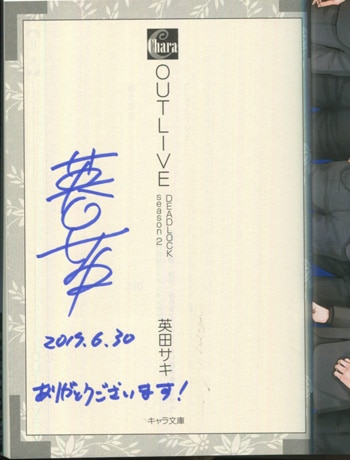 Chara
OUTLIVE
DEADLOCK
season 2
英田サキ
2019.6.30
ありがとうございます!
キャラ文庫